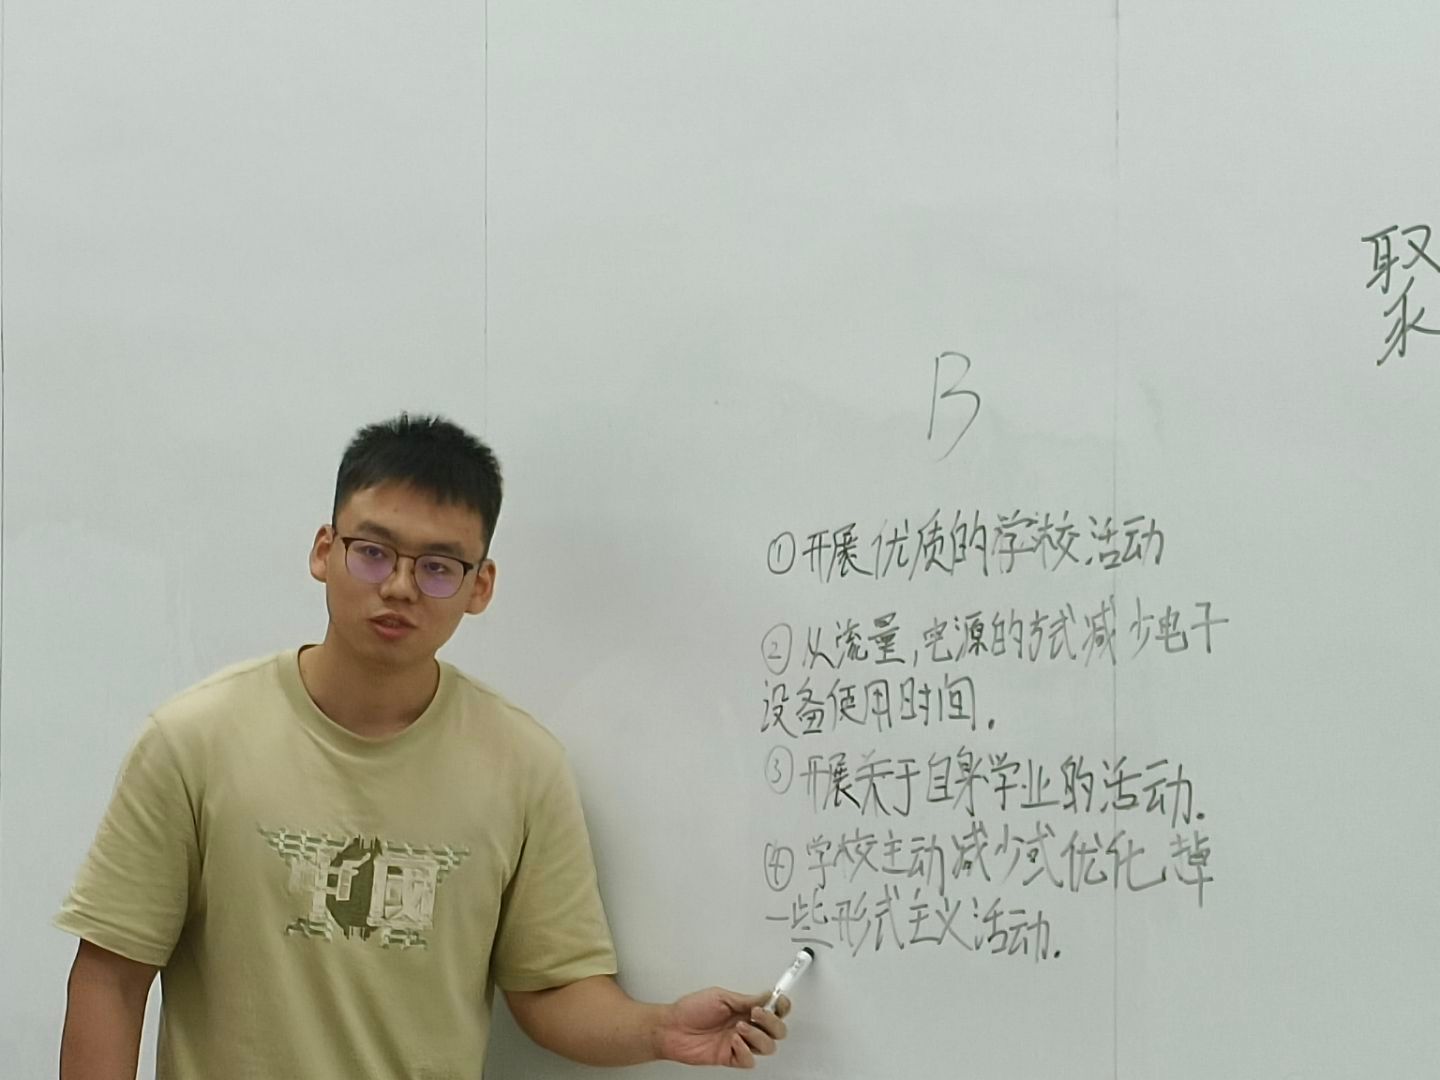 聚
B
①开展优质的学校活动
②从流量,电源的方式减少电子
设备使用时间.
③开展关于自身学业的活动.
④学校主动减少或优化掉
一些形式主义活动.
中國